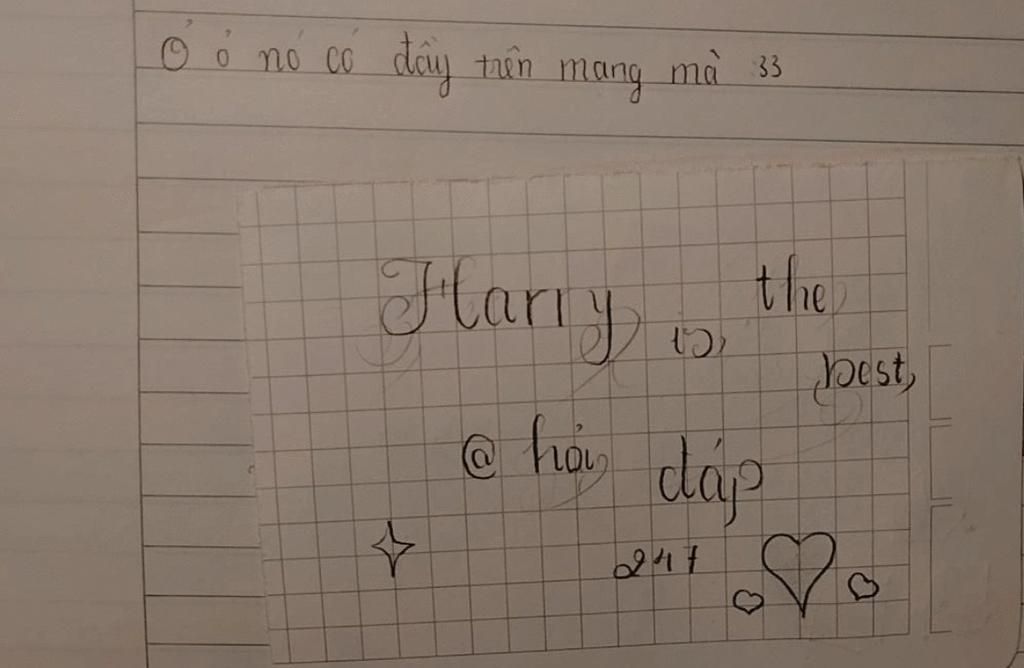 Ở ỏ nó có đầy trên mang mà 33
Harry is the
best
@ hỏi đáp
247